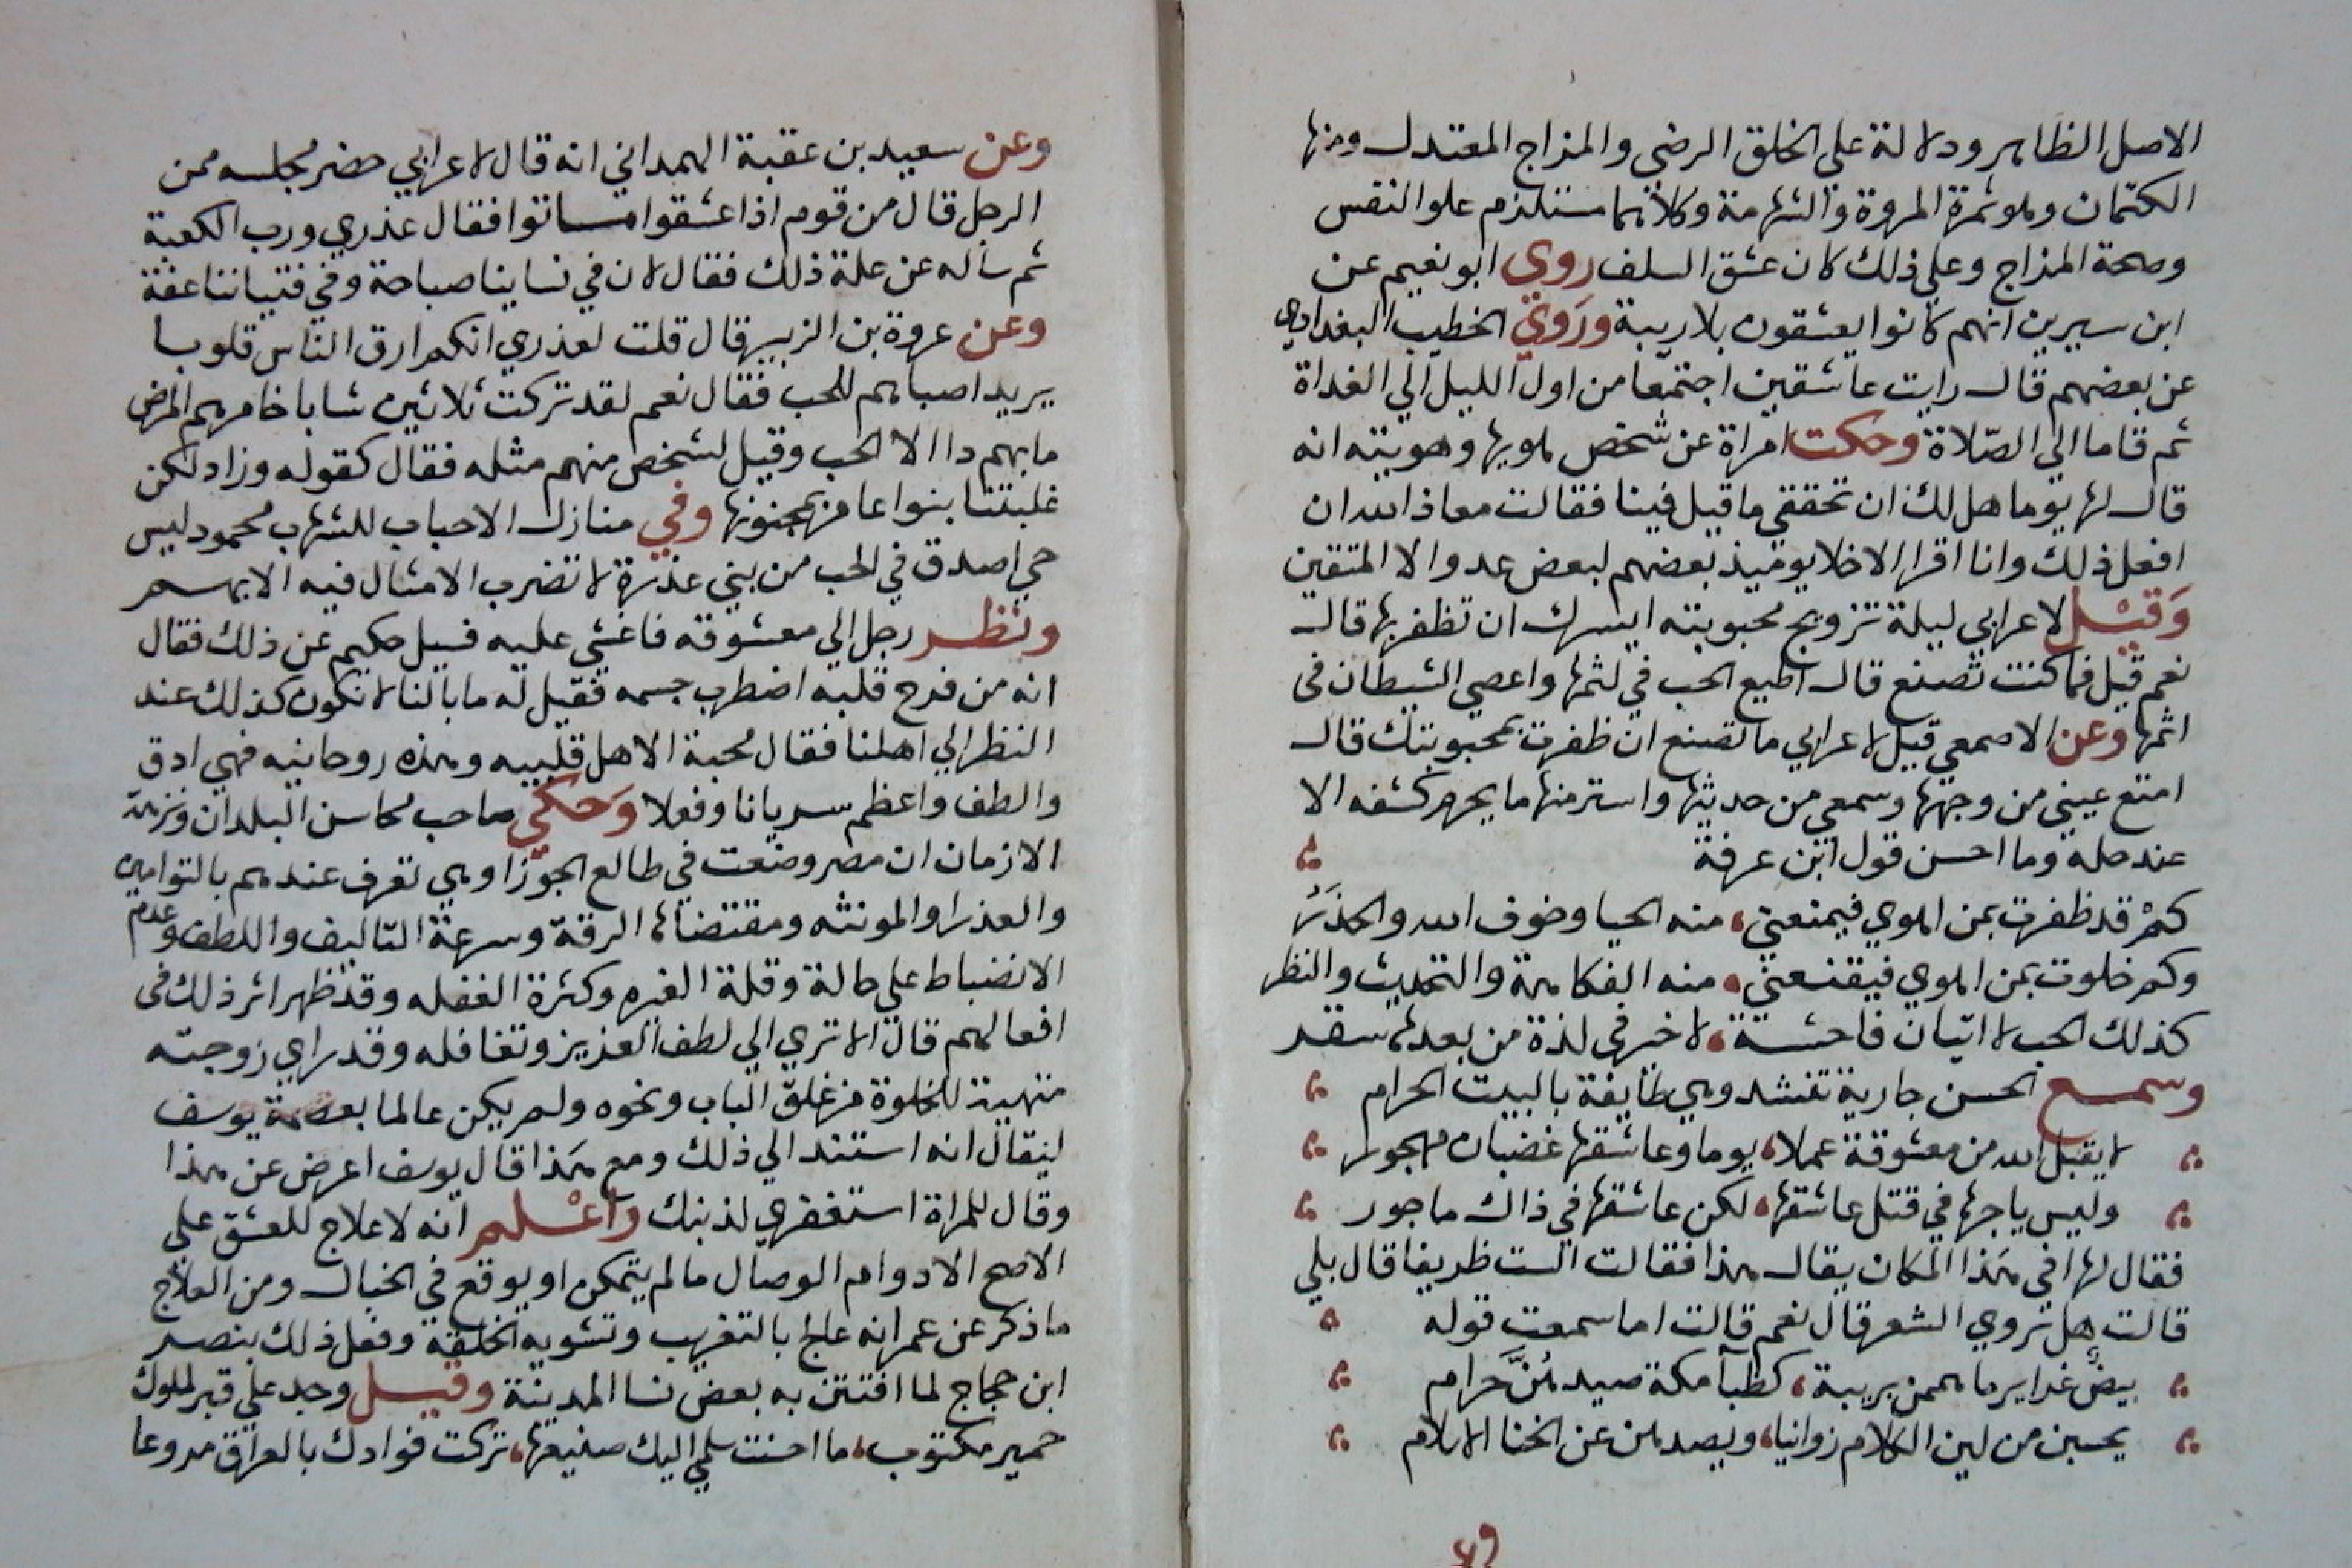 الاصل الظاهر ودلالة على الخلق الرضى والمزاج المعتدل ومنها
الكتمان وهو ثمرة المروة والشهامة وكلاهما مستلزم علو النفس
وصحة المزاج وعلي ذلك كان عشق السلف روي ابو نعيم عن
ابن سيرين انهم كانوا يعشقون بلا ريبة وروي الخطيب البغدادي
عن بعضهم قال رايت عاشقين اجتمعا من اول الليل الي الغداة
ثم قاما الي الصلاة وحكت امراة عن شخص يهويها وهويته انه
قال لها يوما هل لك ان تحققي ما قيل فينا فقالت معاذ الله ان
افعل ذلك وانا اقرا الاخلا يوميذ بعضهم لبعض عدو الا المتقين
وقيل لاعرابي ليلة تزويج محبوبته ايسرك ان تظفر بها قال
نعم قيل فما كنت تصنع قال اطيع الحب في لثمها واعصي الشيطان في
اثمها وعن الاصمعي قيل لاعرابي ما تصنع ان ظفرت بمحبوبتك قال
امتع عيني من وجهها وسمعي من حديثها واستر منها ما يحرم كشفه الا
عند حله وما احسن قول ابن عرفة
كم قد ظفرت بمن اهوي فيمنعني، منه الحيا وخوف الله والحذر
وكم خلوت بمن اهوي فيقنعني، منه الفكاهة والتحديث والنظر
كذلك الحب لا اتيان فاحشة، لا خير في لذة من بعدها سقر
وسمع الحسن جارية تنشد وهي طايفة بالبيت الحرام
لا يقبل الله من معشوقة عملا، يوما وعاشقها غضبان مهجور
وليس ياجرها في قتل عاشقها، لكن عاشقها في ذاك ماجور
فقال لها افي هذا المكان يقال هذا فقالت الست ظريفا قال بلي
قالت هل تروي الشعر قال نعم قالت اما سمعت قوله
بيض غراير ما هممن بريبة، كظبآ مكة صيدهن حرام
يحسبن من لين الكلام زوانيا، ويصدهن عن الخنا الاسلام
وعن سعيد بن عقبة الهمداني انه قال لاعرابي حضر مجلسه ممن
الرجل قال من قوم اذا عشقوا ماتوا فقال عذري ورب الكعبة
ثم ساله عن علة ذلك فقال لان في نساينا صباحة وفي فتياننا عفة
وعن عروة بن الزبير قال قلت لعذري انكم ارق الناس قلوبا
يريد اصباهم للحب فقال نعم لقد تركت ثلاثين شابا خامرهم المرض
ما بهم داا الا الحب وقيل لشخص منهم مثله فقال كقوله وزاد لكن
غلبتنا بنوا عامر بمجنونها وفي منازل الاحباب للشهاب محمود ليس
حي اصدق في الحب من بني عذرة لا تضرب الامثال فيه الا بهم
ونظر رجل الي معشوقه فاغشي عليه فسيل حكيم عن ذلك فقال
انه من فرح قلبه اضطرب جسمه فقيل له ما بالنا لا نكون كذلك عند
النظر الي اهلنا فقال محبة الاهل قلبيه وهذه روحانيه فهي ادق
والطف واعظم سريانا وفعلا وحكي صاحب محاسن البلدان ونزهة
الازمان ان مصر وضعت في طالع الجوزا وهي تعرف عندهم بالتوامين
والعذرا والمونثه ومقتضاها الرقة وسرعة التاليف واللطف وعدم
الانضباط علي حالة وقلة الغيره وكثرة الغفله وقد ظهر اثر ذلك في
افعالهم قال الا تري الي لطف العزيز وتغافله وقد راي زوجته
متهيئة للخلوة من غلق الباب ونحوه ولم يكن عالما بعصمة يوسف
ليقال انه استند الي ذلك ومع هذا قال يوسف اعرض عن هذا
وقال للمراة استغفري لذنبك واعلم انه لا علاج للعشق علي
الاصح الا دوام الوصال ما لم يتمكن او يوقع في الخبال ومن العلاج
ما ذكر عن عمر انه عالج بالتغريب وتشويه الخلقة وفعل ذلك بنصر
ابن حجاج لما افتتن به بعض نسا المدينة وقيل وجد علي قبر لملوك
حمير مكتوب، ما احسنت سلمي اليك صنيعها، تركت فوادك بالعراق مروعا